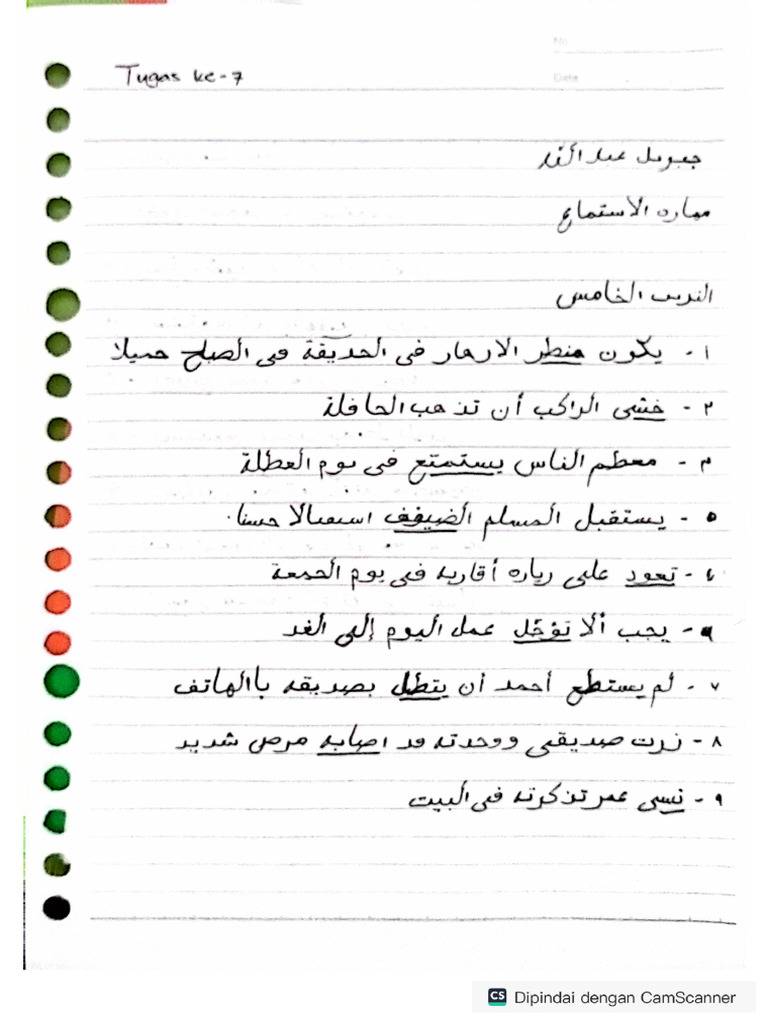 No
Tugas ke-7
Date
جبريل عبد الله
مهاره الاستماع
التدريب الخامس
١- يكون منطر الازهار في الحديقة في الصباح جميلا
٢- خشى الراكب أن تذهب الحافلة
٣- معظم الناس يستمتع في يوم العطلة
٥- يستقبل المسلم الضيفف استقبالا حسنا.
٤- تعود على زياره أقاربه في يوم الجمعة
٩- يجب ألا تؤجل عمل اليوم إلى الغد
٧- لم يستطع أحمد أن يتطل بصديقه باالهاتف
٨- زرت صديقي ووجدته قد اصابه مرض شديد
٩- نسى عمر تذكرته في البيت
CS Dipindai dengan CamScanner